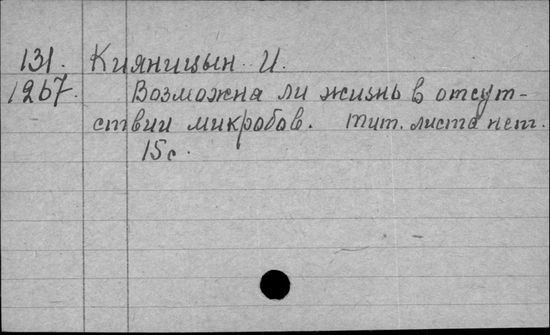 131. Кияницын И.
1267. Возможна ли жизнь в отсут-
ствии микробов. тит. листа нет.
15с.